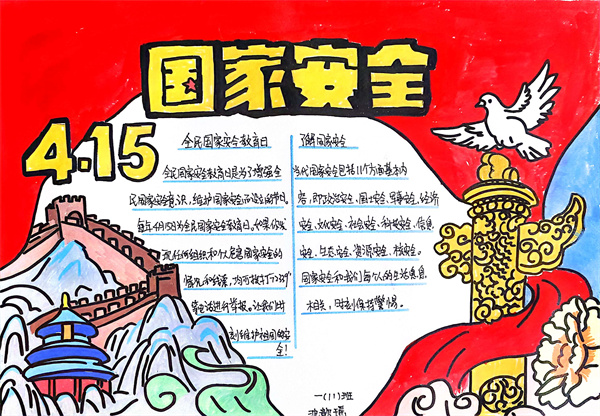 国家安全
4.15
全民国家安全教育日
全民国家安全教育日是为了增强全
民国家安全意识，维护国家安全而设立的节日。
每年4月15日为全民国家安全教育日，如果你发
现任何组织和个人危害国家安全的
情况和线索，均可拨打12339
举报电话进行举报。让我们时
刻维护祖国的安
全！
了解国家安全
当代国家安全包括11个方面基本内
容，即政治安全、国土安全、军事安全、经济
安全、文化安全、社会安全、科技安全、信息
安全、生态安全、资源安全、核安全。
国家安全和我们每个人的生活息息
相关，时刻保持警惕。
一(11)班